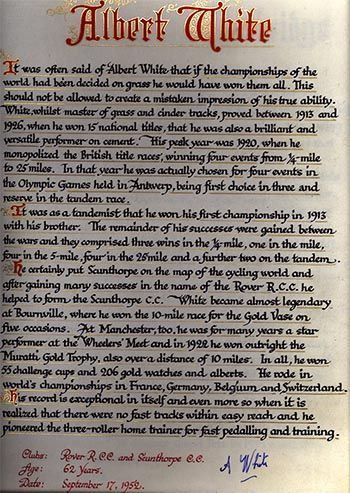 Albert White
It was often said of Albert White that if the championships of the
world had been decided on grass he would have won them all. This
should not be allowed to create a mistaken impression of his true ability.
White, whilst master of grass and cinder tracks, proved between 1913 and
1926, when he won 15 national titles, that he was also a brilliant and
versatile performer on cement. His peak year was 1920, when he
monopolized the British title races, winning four events from ¼-mile
to 25 miles. In that year he was actually chosen for four events in
the Olympic Games held in Antwerp, being first choice in three and
reserve in the tandem race.
It was as a tandemist that he won his first championship in 1913
with his brother. The remainder of his successes were gained between
the wars and they comprised three wins in the ¼ mile, one in the mile,
four in the 5-mile, four in the 25 mile and a further two on the tandem.
He certainly put Scunthorpe on the map of the cycling world and
after gaining many successes in the name of the Rover R.C.C. he
helped to form the Scunthorpe C.C. White became almost legendary
at Bournville, where he won the 10-mile race for the Gold Vase on
five occasions. At Manchester, too, he was for many years a star
performer at the Wheelers' Meet and in 1922 he won outright the
Muratti Gold Trophy, also over a distance of 10 miles. In all, he won
55 challenge cups and 206 gold watches and alberts. He rode in
world's championships in France, Germany, Belgium and Switzerland.
His record is exceptional in itself and even more so when it is
realized that there were no fast tracks within easy reach and he
pioneered the three-roller home trainer for fast pedalling and training.
Clubs: Rover R.C.C. and Scunthorpe C.C.
Age: 62 Years.
Date: September 17, 1952.
A White